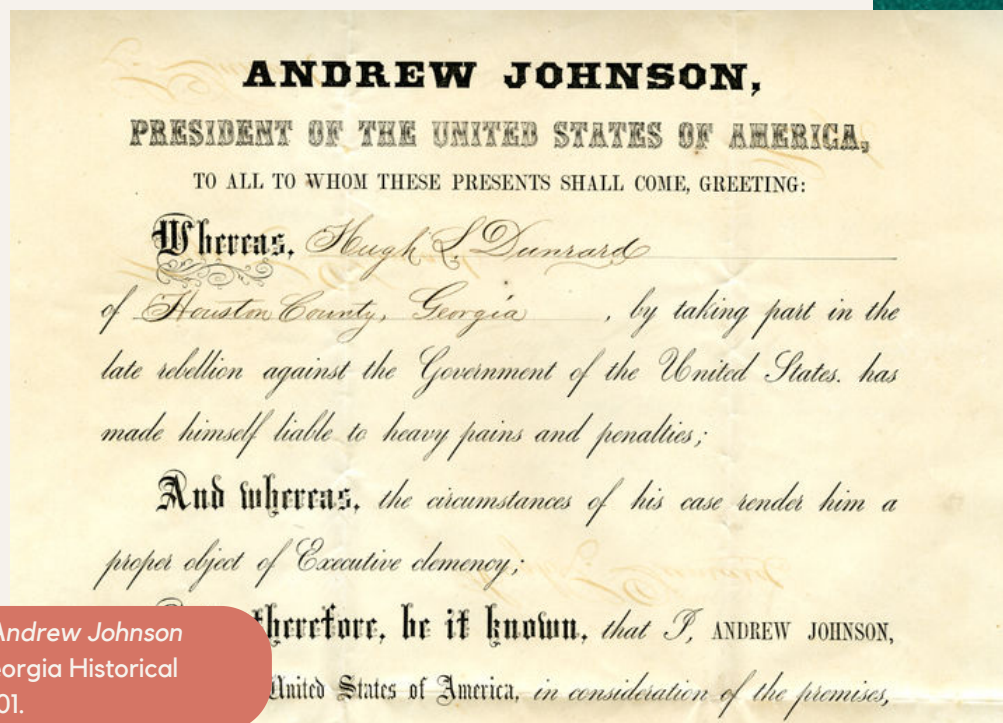 ANDREW JOHNSON,
PRESIDENT OF THE UNITED STATES OF AMERICA,
TO ALL TO WHOM THESE PRESENTS SHALL COME, GREETING:
Whereas, Hugh L. Dunrard
of Houston County, Georgia , by taking part in the
late rebellion against the Government of the United States. has
made himself liable to heavy pains and penalties;
And whereas, the circumstances of his case render him a
proper object of Executive clemency;
therefore, be it known, that I, ANDREW JOHNSON,
United States of America, in consideration of the premises,
Andrew Johnson
orgia Historical
01.